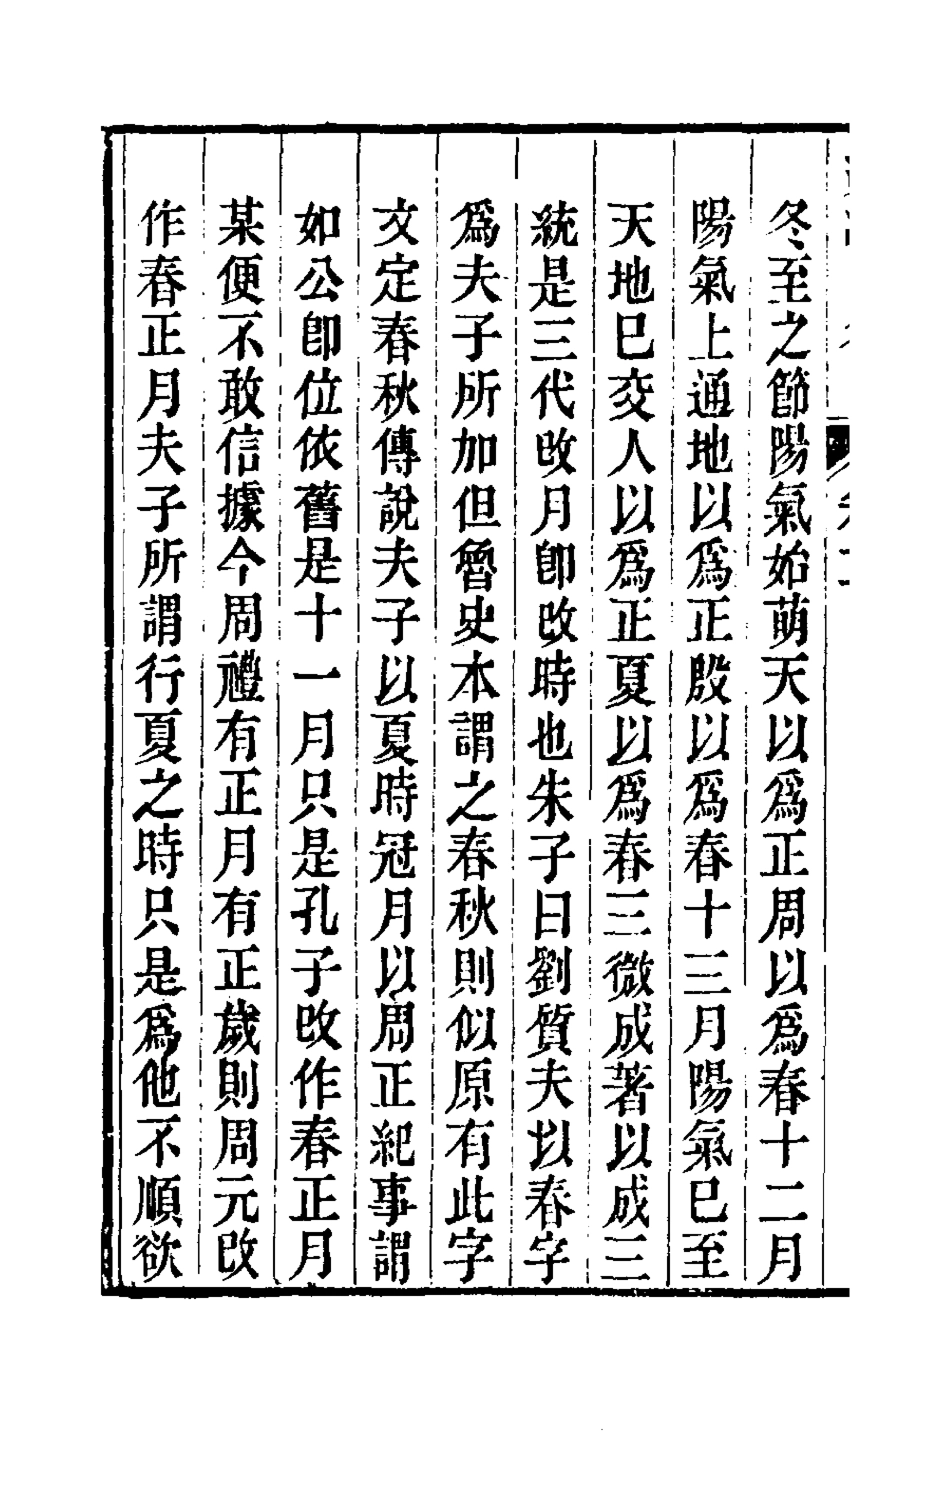 冬至之節陽氣始萌天以爲正周以爲春十二月
陽氣上通地以爲正殷以爲春十三月陽氣已至
天地已交人以爲正夏以爲春三微成著以成三
統是三代改月卽改時也朱子曰劉質夫以春字
爲夫子所加但魯史本謂之春秋則似原有此字
文定春秋傳說夫子以夏時冠月以周正紀事謂
如公卽位依舊是十一月只是孔子改作春正月
某便不敢信據今周禮有正月有正歲則周元改
作春正月夫子所謂行夏之時只是爲他不順欲